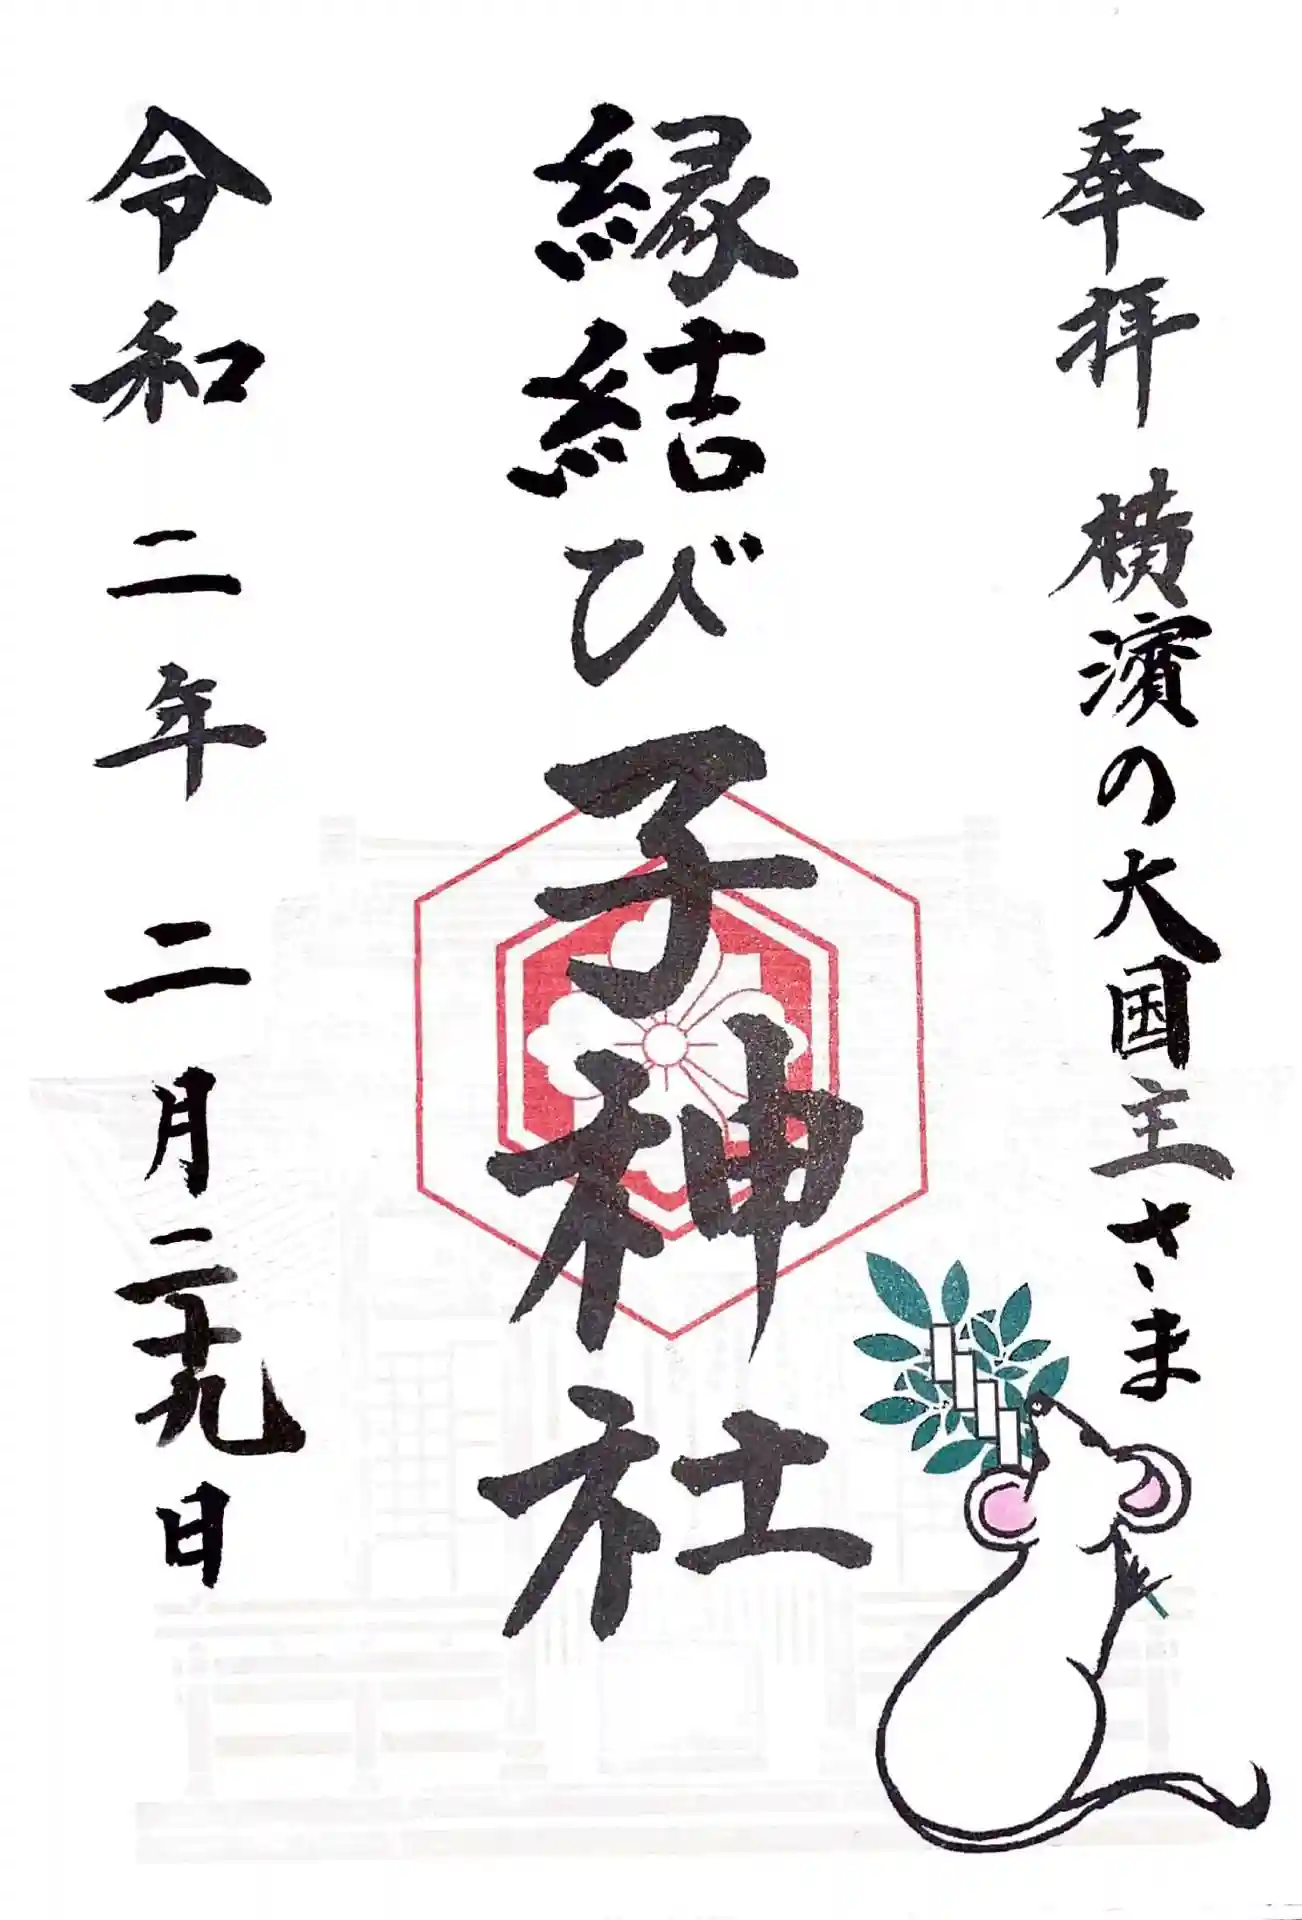 奉拝 横濱の大国主さま
縁結び 子神社
令和二年 二月二十九日